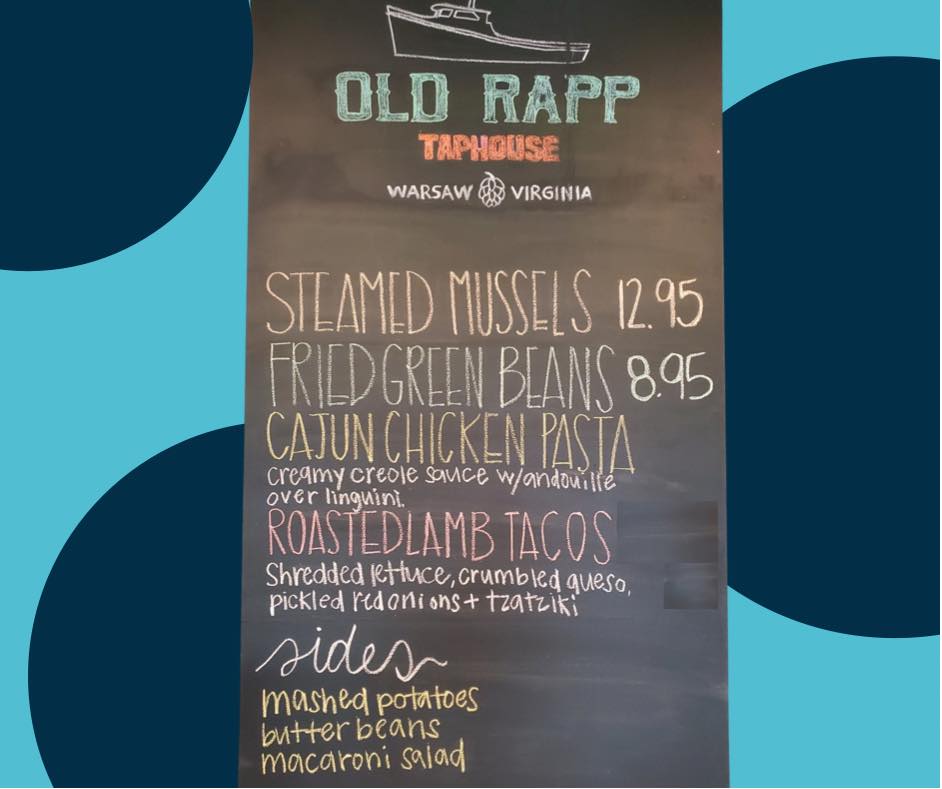 OLD RAPP
TAPHOUSE
WARSAW VIRGINIA
STEAMED MUSSELS 12.95
FRIED GREEN BEANS 8.95
CAJUN CHICKEN PASTA
creamy creole sauce w/andouille
over linguini.
ROASTED LAMB TACOS
Shredded lettuce, crumbled queso,
pickled red onions + tzatziki
sides
mashed potatoes
butter beans
macaroni salad